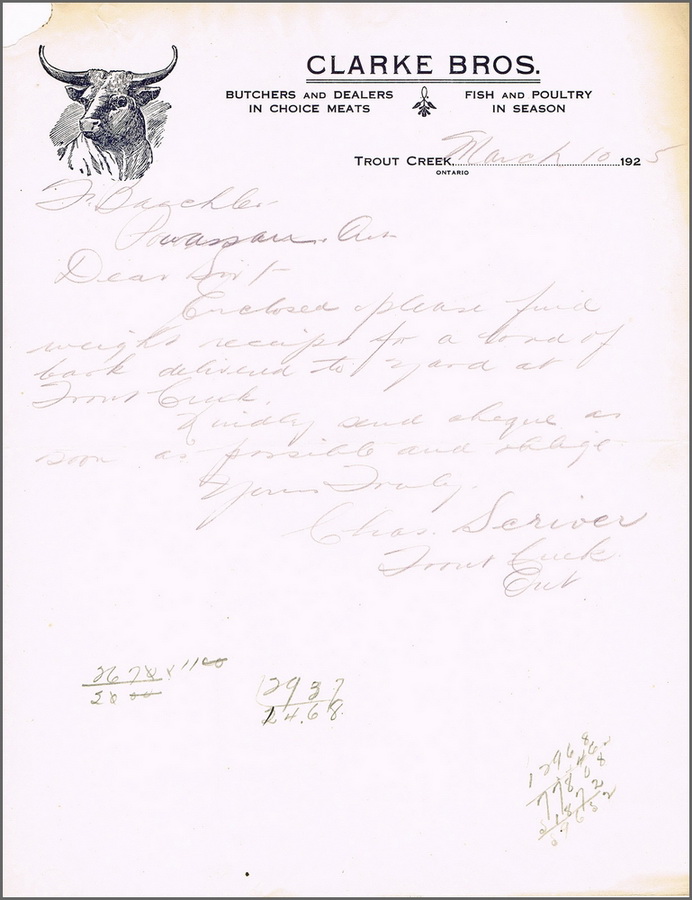 CLARKE BROS.
BUTCHERS AND DEALERS IN CHOICE MEATS
FISH AND POULTRY IN SEASON
TROUT CREEK, March 10 1925
ONTARIO
F. Baechler
Powassan, Ont
Dear Sir:-
Enclosed please find
weight receipt for a load of
bark delivered to yard at
Trout Creek.
Kindly send cheque as
soon as possible and oblige
Yours Truly.
Chas. Scriver
Trout Creek.
Ont.
2937
24.68.